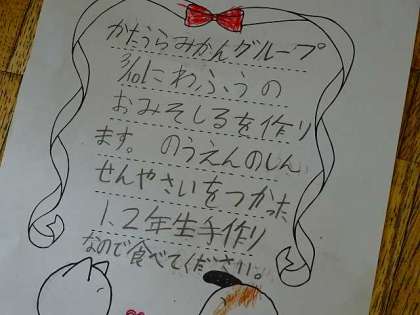 かたうらみかんグループ
公にわふうの
おみそしるを作り
ます。のうえんのしん
せんやさいをつかった
1、2年生手作り
なので食べてください。